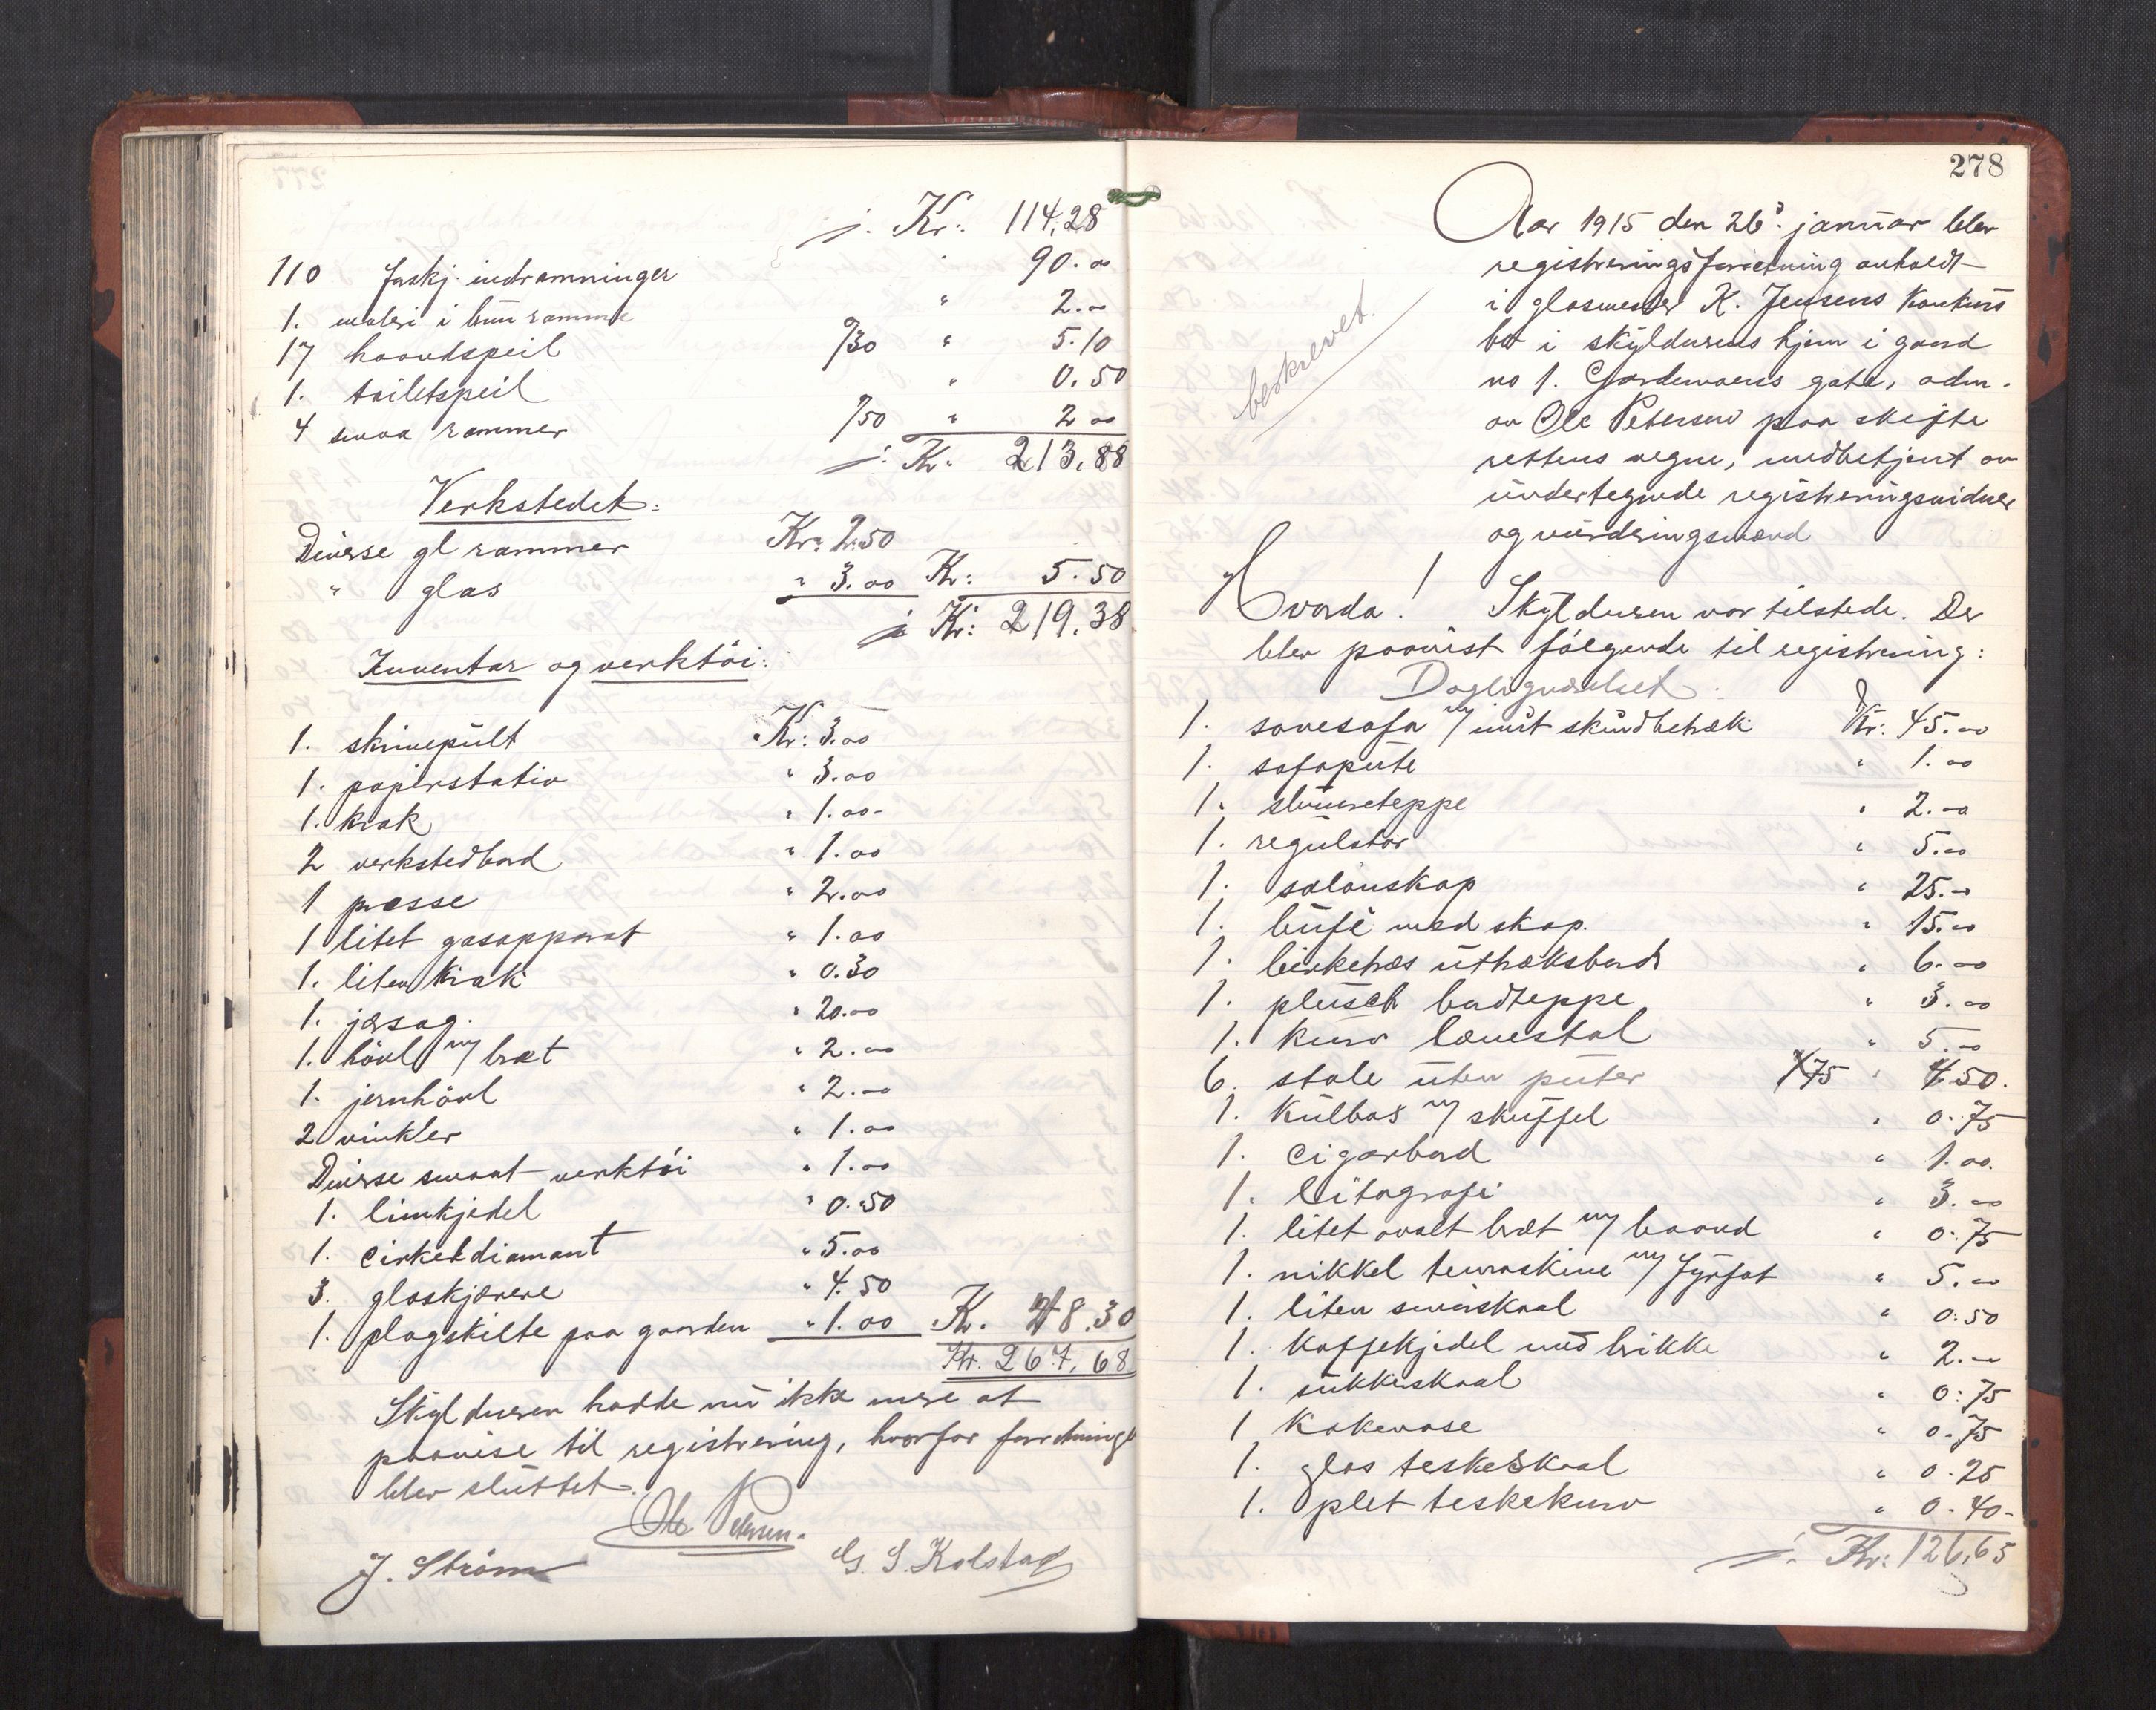 j. Kr: 114,28
110 forskj. indramninger " 90.00
1. maleri i brun ramme " 2.00
17 haandspeil a/30 " 5.10
1. toiletspeil " 0.50
4 smaa rammer a/50 " 2 00
j. Kr. 213,88
Verkstedet:
Diverse gl rammer Kr: 2.50
" glas " 3.00 Kr: 5.50
j Kr: 219,38
Inventar og verktöi:
1. skrivepült Kr: 3.00
1. papirstativ " 3.00
1. krak " 1.00-
2 verkstedbord " 1.00
1 presse " 2.00
1 litet gasapparat " 1.00
1. liten krak " 0.30
1. jersag. " 20.00
1. hövl m/ bret " 2.00
1. jernhövl " 2.00
2 vinkler " 1.00
Diverse smaat verktöi " 1.00
1. limkjedel " 0.50
1. cirkeldiamant " 5.00
3. glaskjærere " 4.50
1. plagskilte paa gaarden " 1.00 Kr. 48.30
Kr. 267,68
Skyldneren hadde nü ikke mere at
paavise til registrering, hvorfor forretningen
blev slüttet.
Ole Petersen.
J. Ström G. S. Kolstad
278
Aar 1915 den 26. janüar blev
registreringsforretning avholdt
i glasmester K. Jensens konkurs
bo i skyldnerens hjem i gaard
no 1. gate, adm.
av Ole Petersen paa skifte
rettens vegne, medbetjent av
ündertegnede registreringsvidner
og vürderingsmænd
beskrevet.
Hvorda! Skyldneren var tilstede. Der
blev paavist fölgende til registrering:
Dagligværelset.
1. sovesofa m/ imit skindbetræk Kr: 45.00
1. sofapüte " 1.00
1. slümreteppe " 2.00
1. regülator " 5.00
1. salonskap " 25.00
1. büfé med skap. " 15.00
1. birketræs üttræksbord " 6.00
1. plüsch bordteppe " 3.00
1. kurv lænestol " 5.00
6. stole üten püter a/75 " 4.50.
1. külboks m/ sküffel " 0.75
1. cigarbord " 1.00.
1. litografi " 3.00
1. litet ovalt bret m/ baand " 0.75
1. nikkel temaskine m/ fyrfat " 5.00
1. liten smörskaal " 0:50
1. kaffekjedel med brikke " 2.00
1. sükkerskaal " 0:75
1 kakevase " 0.75
1. glas teskeskaal " 0.25
1. plet teskekurv " 0.40-
j. Kr: 126,65